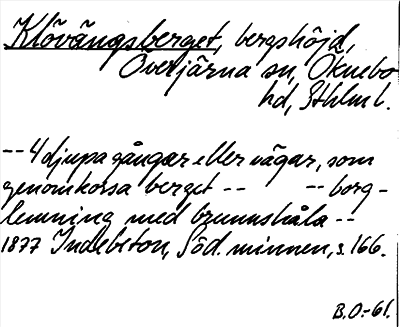 Klövängsberget, bergshöjd,
Överjärna sn, Öknebo
hd, Sthlm l.
-- 4 djupa gångar eller vägar, som
genomkorsa berget -- -- borg-
lemning med brunnshåla --
1877 Indebetou, Söd. minnen, s. 166.
B.O.-61.